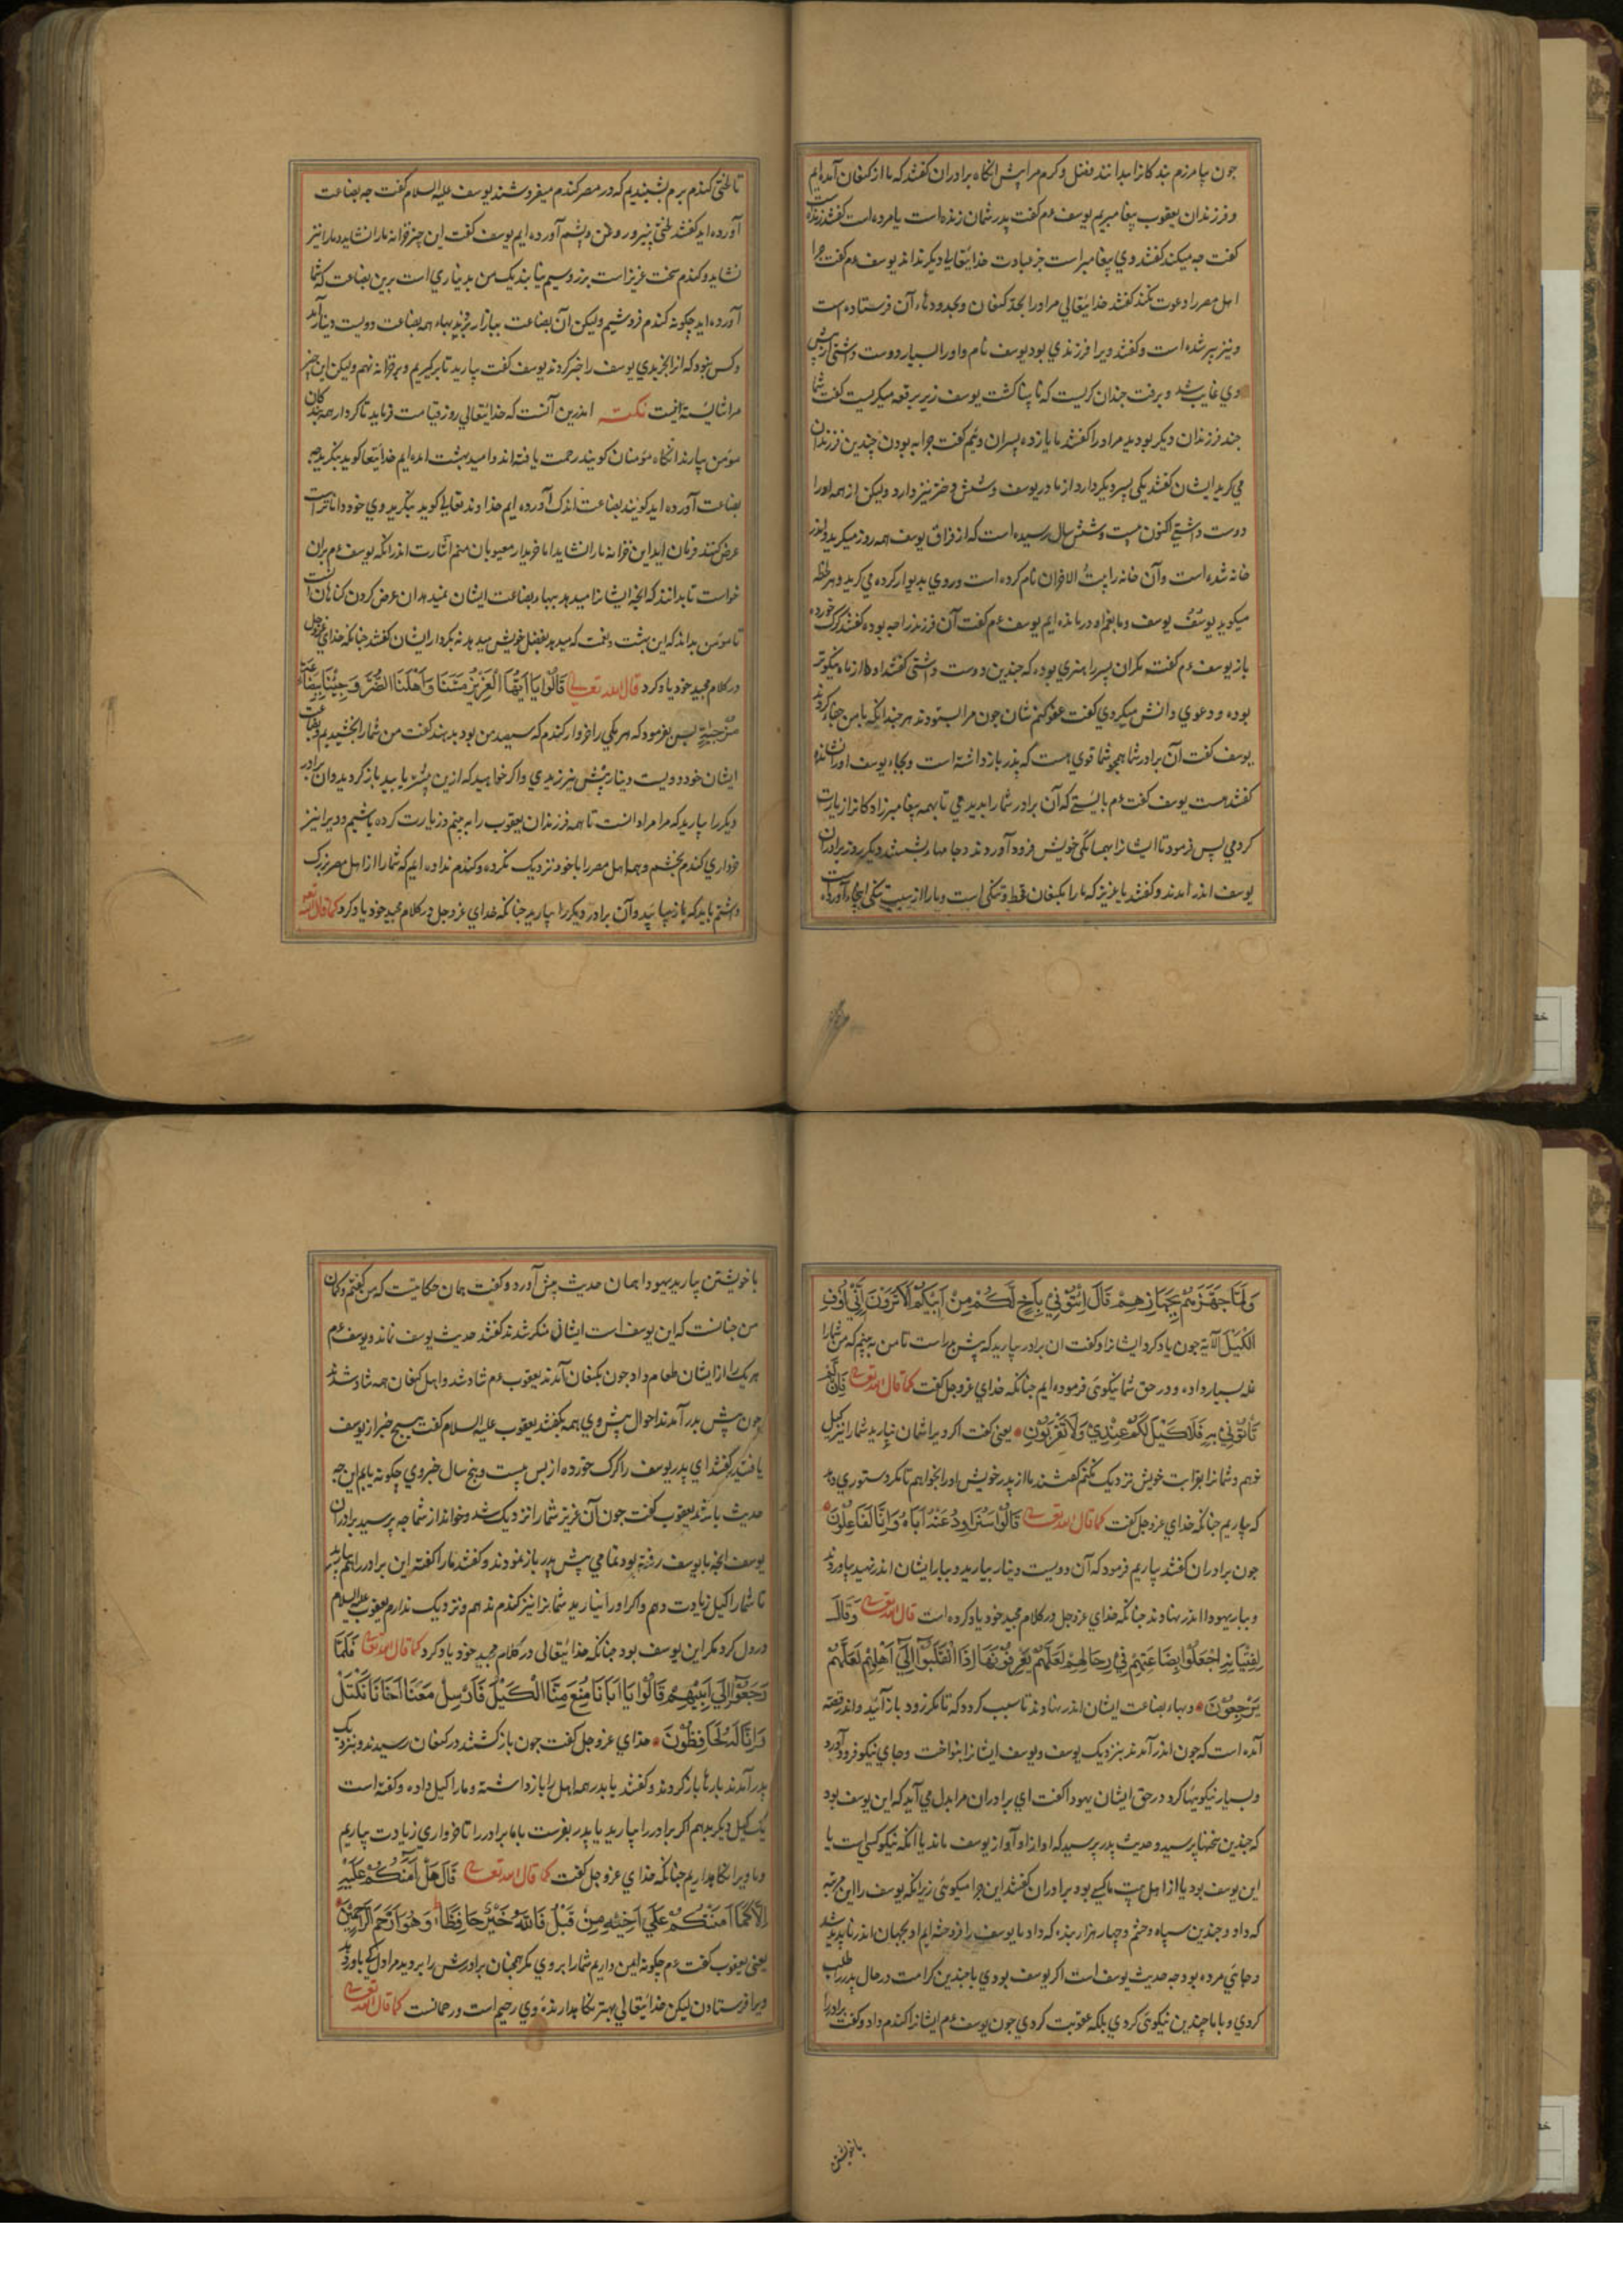 چون بیامرزم بندکانرا بدانند فضل و کرم مرا پس انکاه برادران کفتند که ما از کنعان آمده‌ایم
و فرزندان یعقوب پیغامبریم یوسف ءم کفت پدر شمان زنده است یا مرده است کفتند زنده است
کفت چه میکند کفتند وی پیغامبر است جز عبادت خدایتعالی دیکر نداند یوسف ءم کفت چرا
اهل مصر را دعوت نکند کفتند خدایتعالی مر او را بحد کنعان و بحدودهاء آن فرستاده است
و نیز پیر شده است و کفتند ویرا فرزندی بود یوسف نام و او را بسیار دوست داشتی
وی غایب شد و برفت چندان کریست که نابینا کشت یوسف زیر برقعه میکریست کفت شما
چند فرزندان دیکر بودید مر او را کفتند ما یازده پسران ویم کفت چرا به بودن چندین فرزندان
می کرید ایشان کفتند یکی پسر دیکر دارد از مادر یوسف و شش دختر نیز دارد ولیکن از همه او را
دوست داشتی اکنون بیست و شش سال رسیده است که از فراق یوسف همه روز میکرید و اندر
خانه شده است و آن خانه را بیت الاحزان نام کرده است و روی بدیوار کرده می کرید و هر لحظه
میکوید یوسف یوسف و ما بغم او درمانده ایم یوسف ءم کفت آن فرزند را چه بوده کفتند کرک خورده
باز یوسف ءم کفت مکر آن پسر را هنری بوده که چندین دوست داشتی کفتند او ما را از ماه نیکوتر
بوده و دعوی دانش میکردی کفت عفو کنم شان چون مرا بستودند هر چند انکه با من جفا کردند
یوسف کفت آن برادر شما همچو شما قوی هست که پدر باز داشته است و بجاء یوسف او را نشانده
کفتند هست یوسف کفت ءم بایستی که آن برادر شما را بدیدمی تا همه پیغامبرزادکانرا زیارت
کردمی پس فرمود تا ایشانرا بهمسایکی خویش فرود آوردند و جامها بنشستند دیکر روز برادران
یوسف اندر آمدند و کفتند یا عزیز که ما را بکنعان قحط و تنکی است و ما را از سبب تنکی اینجا آورده است
تا لختی کندم بریم شنیدیم که در مصر کندم میفروشند یوسف علیه السلام کفت چه بضاعت
آورده اید کفتند لختی پنیر و روغن و پشم آورده ایم یوسف کفت این چیز خزانه ما را نشاید و ما را نیز
نشاید و کندم سخت عزیز است بزر و سیم نیابند یک من بدیناری است برین بضاعت که شما
آورده اید چکونه کندم فروشیم ولیکن آن بضاعت ببازار برند بهاء همه بضاعت دویست دینار آمد
و کس نبود که آنرا بخریدی یوسف را خبر کردند یوسف کفت بیارید تا برکیریم و بر خزانه نهم ولیکن این چیز
مرا شایسته نیست نکته اندرین آنست که خدایتعالی روز قیامت فرماید تا کردار همه بندکان
مؤمن بیارند انکاه مؤمنان کویند رحمت یافته اند و امید بهشت آمده ایم خدایتعا کوید بنکرید چه
بضاعت آورده اید کویند بضاعت اندک آورده ایم خداوند تعالی کوید بنکرید وی خود داناتر است
عرض کنند فرمان آید این خزانه ما را نشاید اما خریدار معیوبان منم اشارت اندر انکه یوسف ءم بران
خواست تا بدانند که انچه ایشانرا میدهد بهاء بضاعت ایشان نمیدهد آن عرض کردن کناهان است
تا مؤمن بداند که این بهشت و نعمت که میدهد بفضل خویش میدهد نه بکردار ایشان کفتند چنانکه خدای عزوجل
در کلام مجید خود یاد کرد قال الله تعالی قَالُوا يَا اَيُّهَا الْعَزِيزُ مَسَّنَا وَاَهْلَنَا الضُّرُّ وَجِئْنَا بِبِضَاعَةٍ
مُزْجٰيةٍ پس بفرمود که هر یکی را خروار کندم که سیصد من بود بدهند کفت من شما را بخشیدیم و بضاعت
ایشان خود دویست دینار بیش نیرزیدی و اکر خواهید که ازین بیشتر یابید باز کردید و آن برادر
دیکر را بیارید که مرا مراد آنست تا همه فرزندان یعقوب را به بینم و زیارت کرده باشیم و ویرا نیز
خرواری کندم بخشم و همه اهل مصر را با خود نزدیک نکرده و کندم نداده ایم که شما را از اهل مصر بزرک
داشتم باید که باز بیائید و آن برادر دیکر را بیارید چنانکه خدای عزوجل در کلام مجید خود یاد کرد کما قال الله تعالی
وَلَمَّا جَهَّزَهُمْ بِجَهَازِهِمْ قَالَ ائْتُونِي بِاَخٍ لَكُمْ مِنْ اَبِيكُمْ اَلَا تَرَوْنَ اَنِّي اُوفِ
الْكَيْلَ الآیة چون یاد کرد ایشانرا و کفت آن برادر بیارید که پیش پدر است تا من به بینم که من شما را
غله بسیار داده و در حق شما نیکوئی فرموده ایم چنانکه خدای عزوجل کفت کما قال الله تعالی فَاِنْ لَمْ
تَأْتُونِي بِهِ فَلَا كَيْلَ لَكُمْ عِنْدِي وَلَا تَقْرَبُونِ یعنی کفت اکر ویرا شمان نیارید شما را نیز کیل
ندهم و شما را بقرابت خویش نزدیک نکنم کفتند ما از پدر خویش او را بخواهیم تا مکر دستوری دهد
که بیاریم چنانکه خدای عزوجل کفت کما قال الله تعالی قَالُوا سَنُرَاوِدُ عَنْهُ اَبَاهُ وَاِنَّا لَفَاعِلُونَ
چون برادران کفتند بیاریم فرمود که آن دویست دینار بیارید و ببار ایشان اندر نهید بیاوردند
و ببار یهودا اندر نهادند چنانکه خدای عزوجل در کلام مجید خود یاد کرده است قال الله تعالی وَقَالَ
لِفِتْيَانِهِ اجْعَلُوا بِضَاعَتَهُمْ فِي رِحَالِهِمْ لَعَلَّهُمْ يَعْرِفُونَهَا اِذَا انْقَلَبُوا اِلَى اَهْلِهِمْ لَعَلَّهُمْ
يَرْجِعُونَ و بهاء بضاعت ایشان اندر نهادند تا سبب کردد که تا مکر زود باز آیند و اندر قصه
آمده است که چون اندر آمدند بنزدیک یوسف و یوسف ایشانرا بنواخت و جای نیکو فرود آورد
و بسیار نیکوییها کرد در حق ایشان یهودا کفت ای برادران مرا بدل می آید که این یوسف بود
که چندین سخنها پرسید و حدیث پدر پرسید که آواز او آواز یوسف ماند یا انکه نیکو کسی است یا
این یوسف بود یا از اهل بیت ما کسی بود برادران کفتند این چرا میکوئی زیرا که یوسف را این مرتبه
که داد و چندین سپاه و حشم و چهار هزار بنده که داد ما یوسف را فروخته ایم او بجهان اندر ناپدید شد
و جائی مرده بود چه حدیث یوسف است اکر یوسف بودی با چندین کرامت در حال پدر را طلب
کردی و با ما چندین نیکوئی کردی بلکه عقوبت کردی چون یوسف ءم ایشانرا کندم داد و کفت برادر را
باخویشتن
با خویشتن بیارید یهودا همان حدیث پیش آورد و کفت همان حکایت است که من کفتم و کمان
من چنانست که این یوسف است ایشان منکر شدند کفتند حدیث یوسف نماند و یوسف ءم
هر یک را از ایشان طعام داد چون بکنعان آمدند یعقوب ءم شاد شد و اهل کنعان همه شاد شدند
چون پیش پدر آمدند احوال پیش وی همه بکفتند یعقوب علیه السلام کفت هیچ خبر از یوسف
یافتید کفتند ای پدر یوسف را کرک خورده از پس بیست و پنج سال خبر وی چکونه یابم این چه
حدیث باشد یعقوب کفت چون آن عزیز شما را نزدیک شد و خواند از شما چه پرسید برادران
یوسف انچه با یوسف رفته بود تمامی پیش پدر باز نمودند و کفتند ما را کفته این برادر را هم بیارید
تا شما را کیل زیادت دهم و اکر او را نیارید شمایانرا نیز کندم ندهم و نزدیک ندارم یعقوب علیه السلام
در دل کرد مکر این یوسف بود چنانکه خدایتعالی در کلام مجید خود یاد کرد کما قال الله تعالی فَلَمَّا
رَجَعُوا اِلَى اَبِيهِمْ قَالُوا يَا اَبَانَا مُنِعَ مِنَّا الْكَيْلُ فَاَرْسِلْ مَعَنَا اَخَانَا نَكْتَلْ
وَاِنَّا لَهُ لَحَافِظُونَ خدای عزوجل کفت چون باز کشتند در کنعان رسیدند و بنزدیک
پدر آمدند بارها باز کردند و کفتند یا پدر همه اهل را باز داشته و ما را کیل داده و کفته است
یک کیل دیکر بدهم اکر برادر را بیارید یا پدر بفرست با ما برادر را تا خرواری زیادت بیاریم
و ما ویرا نکاه داریم چنانکه خدای عزوجل کفت کما قال الله تعالی قَالَ هَلْ آمَنُكُمْ عَلَيْهِ
اِلَّا كَمَا اَمِنْتُكُمْ عَلَى اَخِيهِ مِنْ قَبْلُ فَاللّٰهُ خَيْرٌ حَافِظًا وَهُوَ اَرْحَمُ الرَّاحِمِينَ
یعنی یعقوب کفت ءم چکونه ایمن داریم شما را بر وی مکر همچنان برادرش را بردید مرا دل کی باور دهد
ویرا فرستادن لیکن خدایتعالی بهتر نکاهدارنده وی رحیم است و رحمانست کما قال الله تعالی